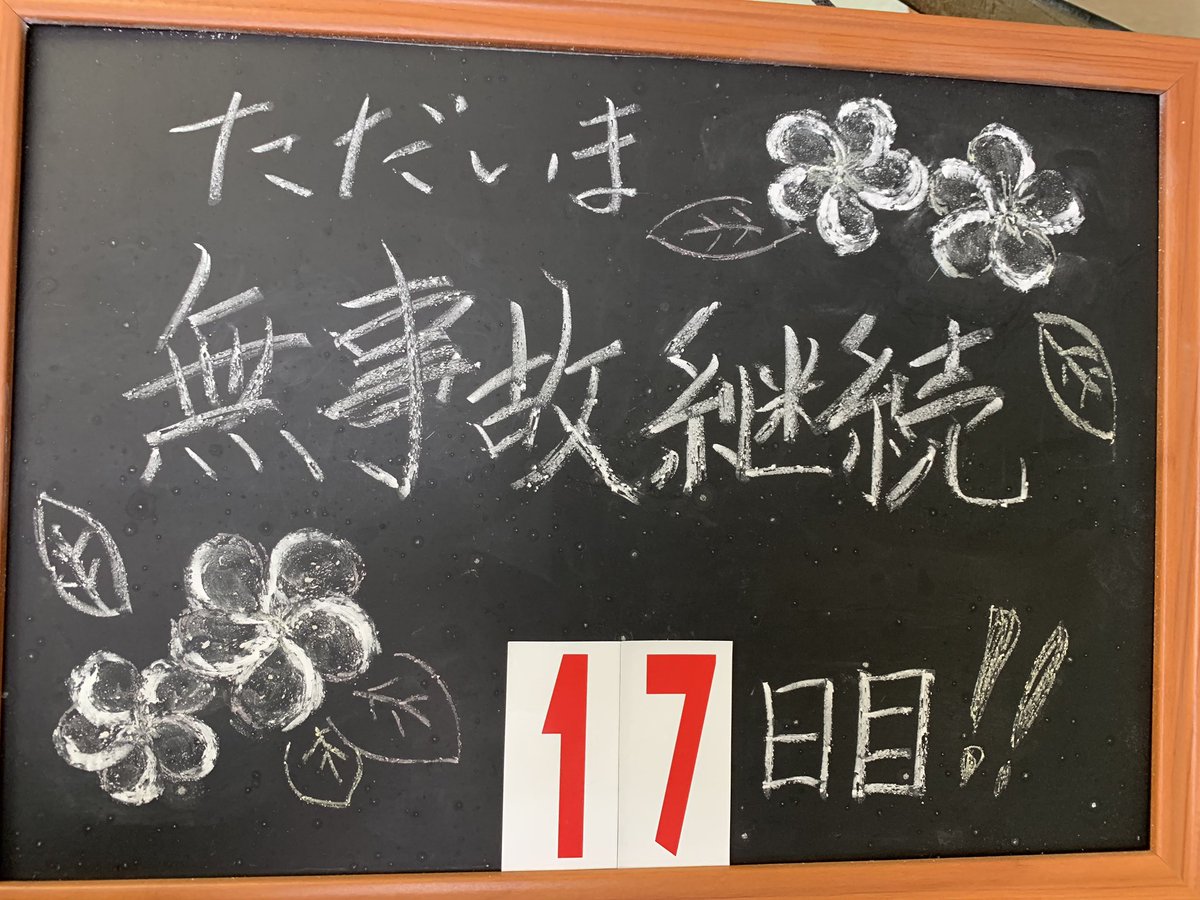 ただいま
無事故継続
17日目!!